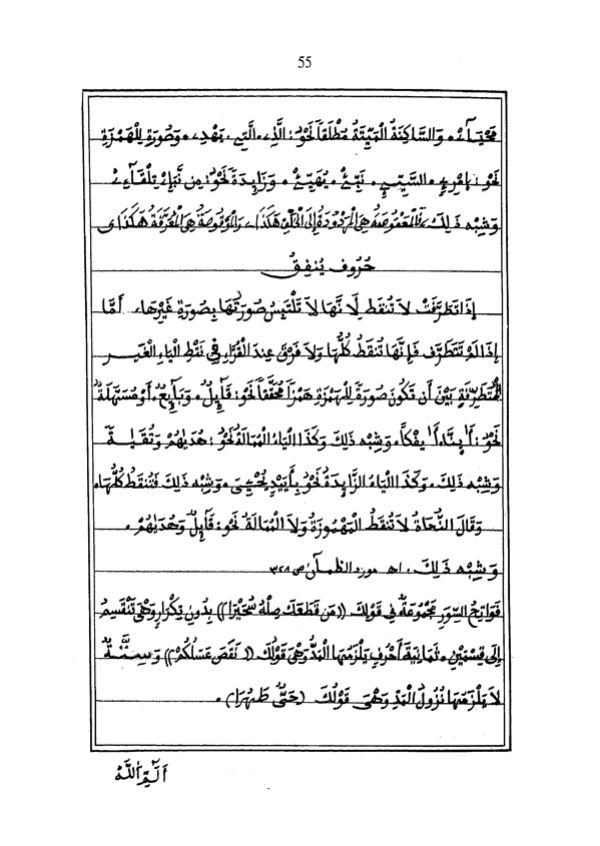 55
مَحْيَآءَ، وَالسَّاكِنَةُ الْمَيِّتَةُ مُطْلَقاً نَحْوُ: الَّذِے، الَّتِے، يَهْدِے، وَصُورَةٍ لِلْهَمْزَةِ
نَحْوُ: اِمْرِئٍ، السَّيِّئِ، نَبِّئْ، يُهَيِّئْ، وَزَايِدَةً نَحْوُ: مِن نَّبَإِےْ تِلْقَآءِےْ
وَشِبْهِ ذَلِكَ، هِيَ الْمَرْدُودَةُ إِلَى الْخَلْفِ هَكَذَا ے وَالْمَوْقُوصَةُ هِيَ الْمُعَرَّقَةُ هَكَذَا ى
حُرُوف يُنفِقُ
إِذَا تَطَرَّفَتْ لاَ تُنقَط لِأَنَّهَا لاَ تَلْتَبِسُ صُورَتُهَا بِصُورَةِ غَيْرِهَا، أَمَّا
إِذَا لَمْ تَتَطَرَّف فَإِنَّهَا تُنقَطُ كُلُّهَا وَلاَ فَرْقَ عِندَ الْقُرَّاءِ فِي نَقْطِ الْيَاءِ الْغَيْرِ
الْمُتَطَرِّفَةِ بَيْنَ أَن تَكُونَ صُورَةً لِلْهَمْزَةِ هَمْزاً مُحَقَّقاً نَحْوُ: قَآئِلٌ، وَبَآئِعٌ، أَوْ مُسَهَّلَةً
نَحْوُ: أَ۬ىنَّا، أَ۬ىفْكاً، وَشِبْهِ ذَلِكَ وَكَذَا الْيَاءُ الْمُمَالَةُ نَحْوُ: هُدَيٰهُمْ وَتُقَيٰةً
وَشِبْهِ ذَلِكَ، وَكَذَا الْيَاءُ الزَّايِدَةُ نَحْوُ بِأَيْيْدٍ نُحْيِي، وَشِبْهِ ذَلِكَ فَتُنقَطُ كُلُّهَا،
وَقَالَ النُّحَاةُ لاَ تُنقَطُ الْمَهْمُوزَةُ وَلاَ الْمُمَالَةُ نَحْوُ: قَآئِلٌ وَهُدَيٰهُمْ،
وَشِبْهِ ذَلِكَ، اهـ مورد الظمآن ص ٣٢٨
فَوَاتِحُ السُّوَرِ مَجْمُوعَةٌ فِي قَوْلِكَ ((مَن قَطَعَكَ صِلْهُ سُحَيْراً)) بِدُونِ تِكْرَارٍ وَهْيَ تَنْقَسِمُ
إِلَى قِسْمَيْنِ، ثَمَانِيَةُ أَحْرُفٍ يَلْزَمُهَا الْمَدُّ وَهْيَ قَوْلُكَ ((نَقَصَ عَسَلُكُمْ)) وَسِتَّةٌ
لاَ يَلْزَمُهَا نُزُولُ الْمَدِّ وَهْيَ قَوْلُكَ (حَيٌّ طَهُرَا)،
أَلَٓمِّٓ اللَّهُ